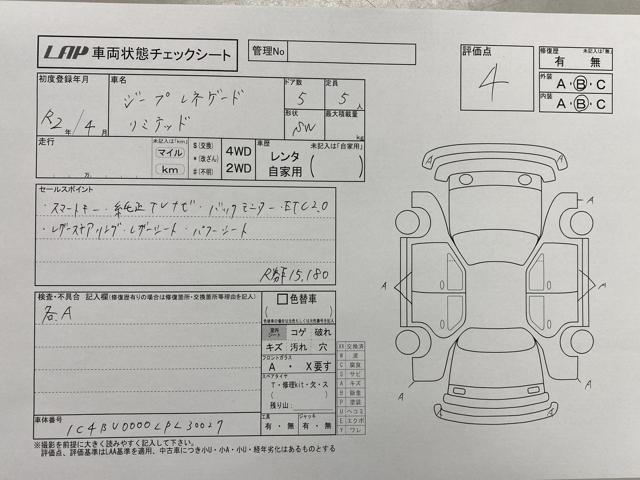 LAP 車両状態チェックシート
管理No
評価点
4
修復歴 未記入は「無」
有 無
外装
A・B・C
内装
A・B・C
初度登録年月
R2年/4月
車名
ジープレネゲード
リミテッド
ドア数
5
定員
5人
形状
SW
最大積載量
kg
走行
未記入は「km」
マイル
km
万
$(交換)
*(改ざん)
#(不明)
4WD
2WD
車歴 未記入は「自家用」
レンタ
自家用
( )
セールスポイント
・スマートキー・純正TVナビ・バックモニター・ETC2.0
・レザーステアリング・レザーシート・パワーシート
R券¥15,180
検査・不具合 記入欄(修復歴有りの場合は修復箇所・交換箇所等理由を記入)
各A
色替車
( )
室内
シート
コゲ 破れ
キズ 汚れ 穴
フロントガラス
A ・ X要す
スペアタイヤ
T・修理kit・欠・ス
( )
残り山:
工具
有・無
ジャッキ
有・無
XX 交換済
W 波
C 腐食
S サビ
A キズ
P 塗装
U ヘコミ
E エクボ
Y ワレ
車体番号
1C4BU0000LPL30027
※撮影を前提に大きく読みやすく記入して下さい。
評価点、評価基準はLAA基準を適用、中古車につき小U・小A・小U・経年劣化はあるものとする
A
A
A
A
A
A
A
A